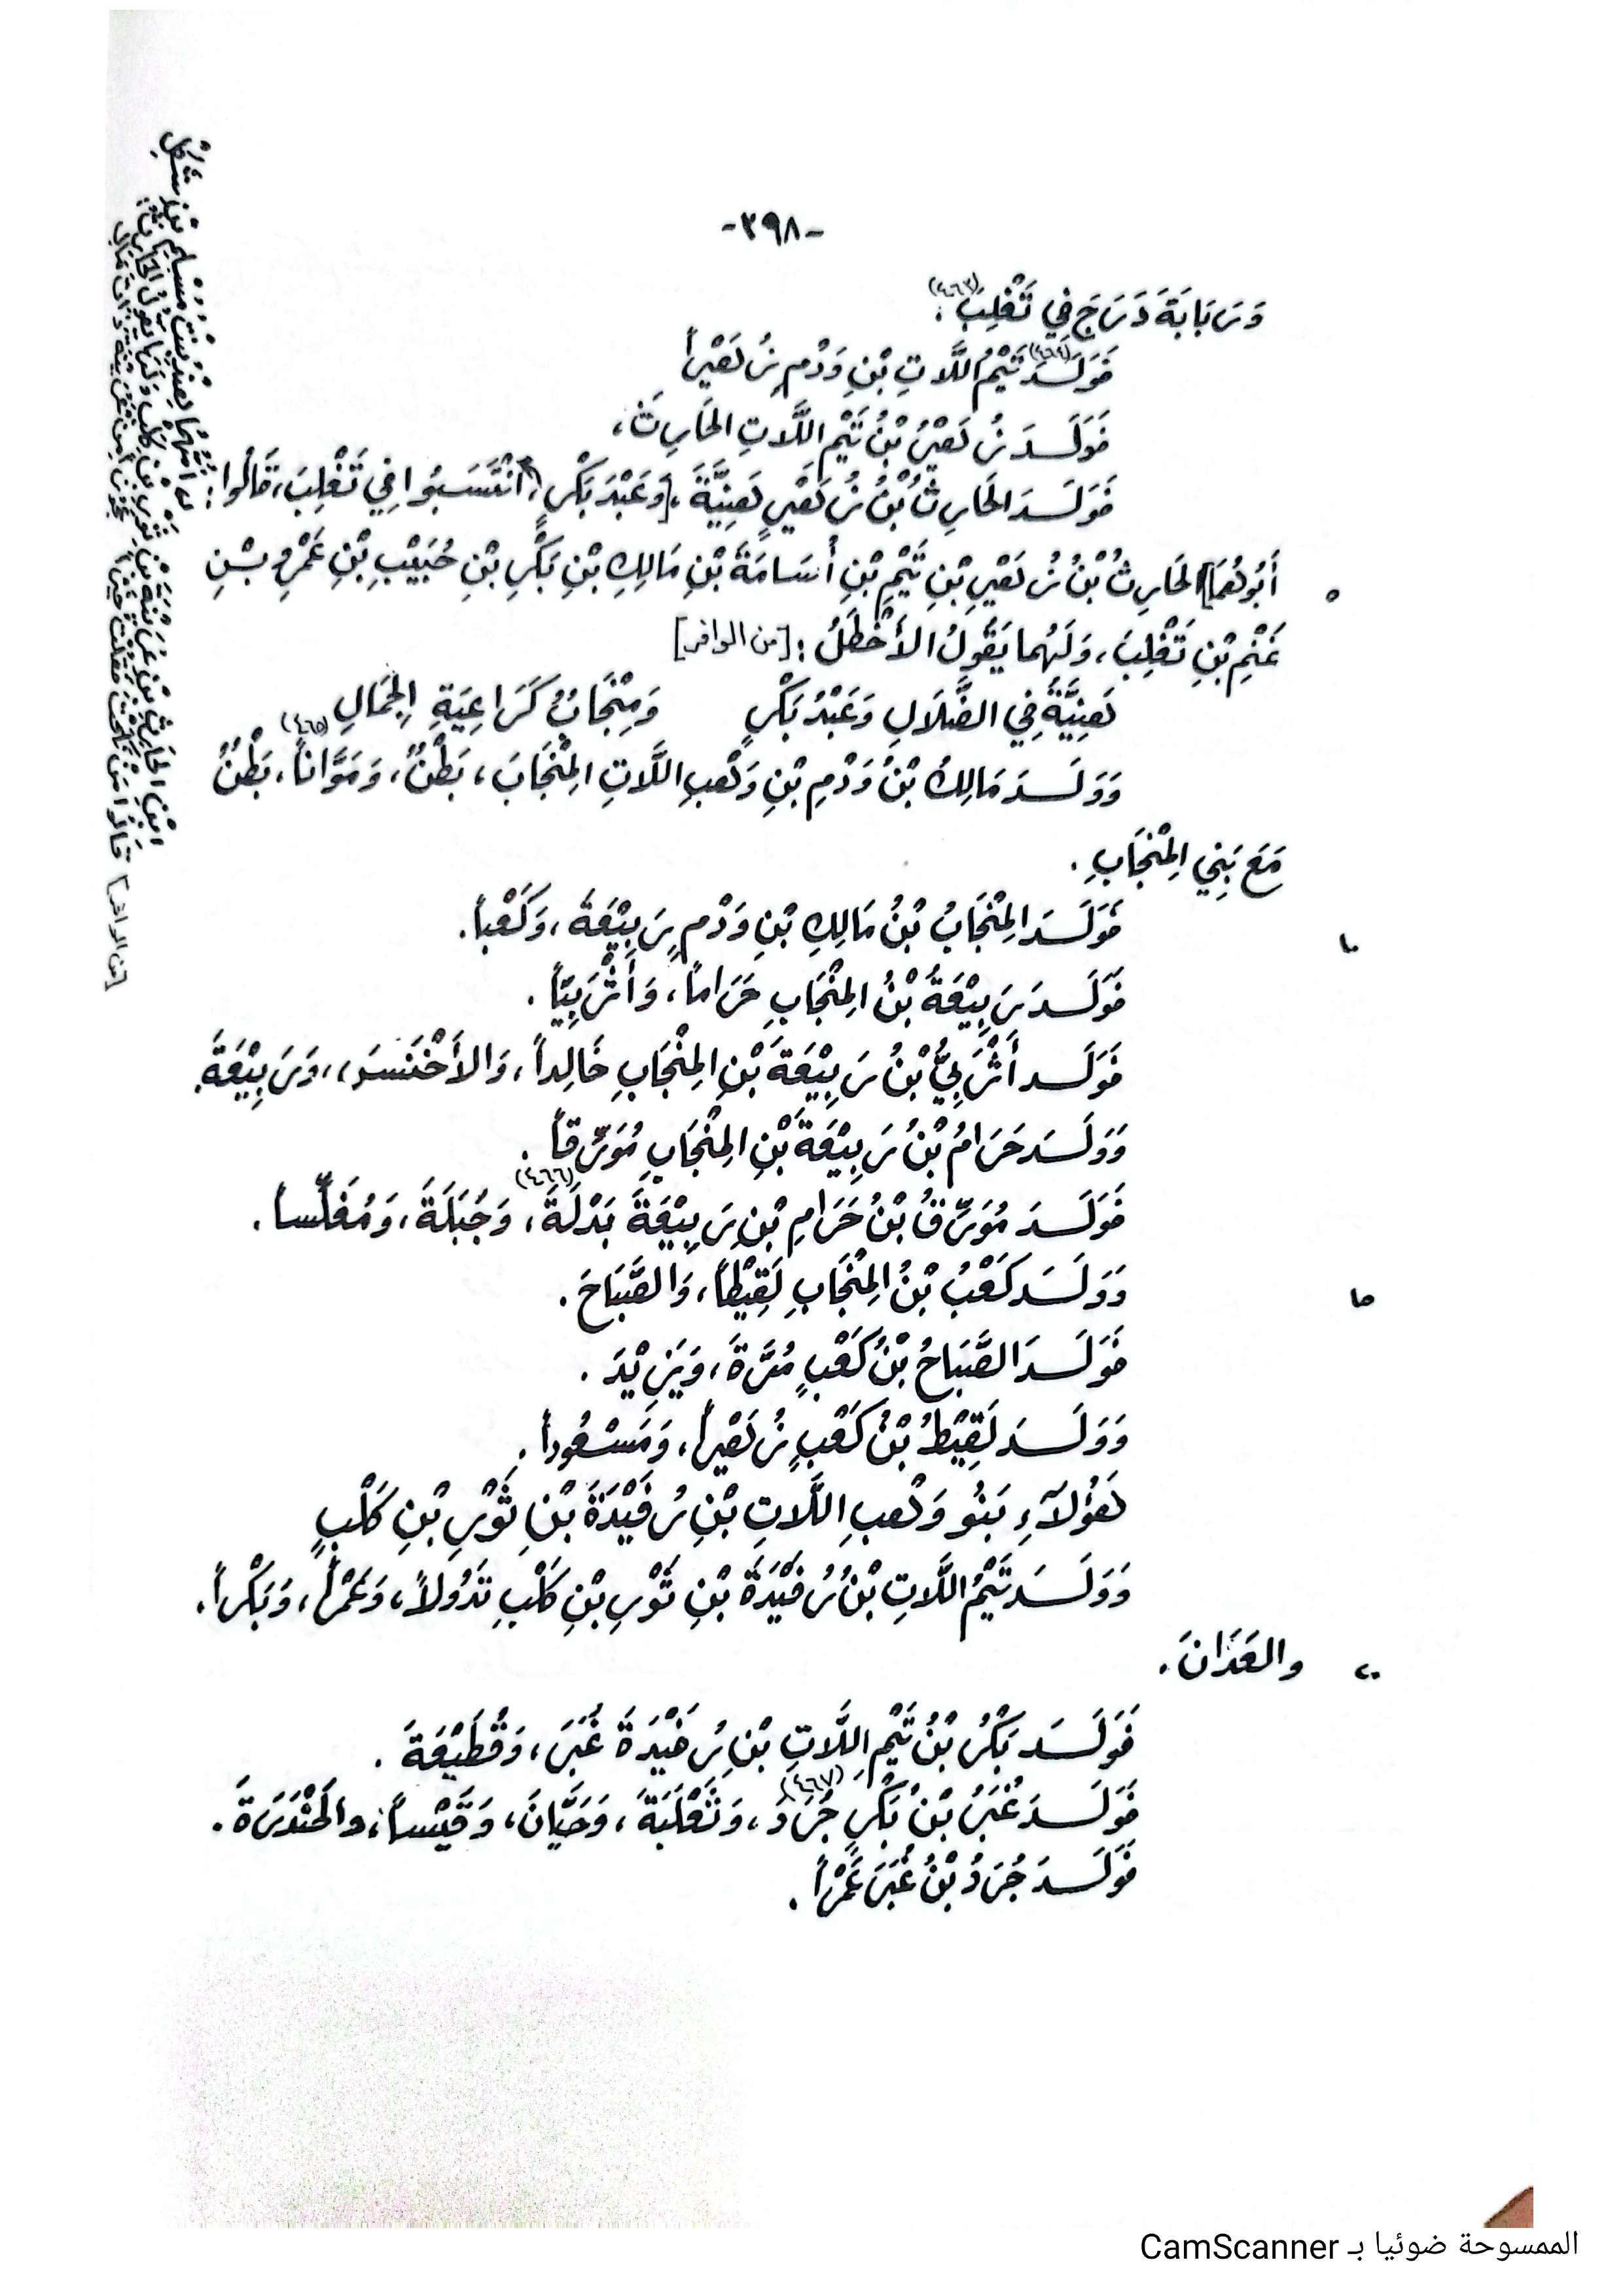 -٣٩٨-
وَرَبَابَةَ دَرَجَ فِي تَغْلِبَ (٤٦٣).
فَوَلَدَ (٤٦٤) تَيْمُ اللَّاتِ بْنِ وَدْمٍ زُهَيْراً
فَوَلَدَ زُهَيْرُ بْنُ تَيْمِ اللَّاتِ الحَارِثَ،
فَوَلَدَ الحَارِثُ بْنُ زُهَيْرٍ هَنِيَّةَ، [وَعَبْدَ بَكْرٍ، انْتَسَبُوا فِي تَغْلِبَ، قَالُوا:
٥ أَبُوهُمَا] الحَارِثُ بْنُ زُهَيْرِ بْنِ تَيْمِ بْنِ أُسَامَةَ بْنِ مَالِكِ بْنِ بَكْرِ بْنِ حُبَيْبِ بْنِ عَمْرِو بْنِ
غَنْمِ بْنِ تَغْلِبَ، وَلَهُمَا يَقُولُ الأَخْطَلُ: [من الوافر]
هَنِيَّةُ فِي الضَّلَالِ وَعَبْدُ بَكْرٍ وَمِنْجَابُ كَرَاعِيَةِ الجِمَالِ
وَوَلَدَ مَالِكُ بْنُ وَدْمِ بْنِ وَهْبِ اللَّاتِ المِنْجَابَ، بَطْنٌ، وَمَوَّاناً (٤٦٥)، بَطْنٌ
مَعَ بَنِي المِنْجَابِ.
١٠ فَوَلَدَ المِنْجَابُ بْنُ مَالِكِ بْنِ وَدْمٍ رَبِيْعَةَ، وَكَعْباً.
فَوَلَدَ رَبِيْعَةُ بْنُ المِنْجَابِ حَرَاماً، وَأَثْرَبِيّاً.
فَوَلَدَ أَثْرَبِيُّ بْنُ رَبِيْعَةَ بْنِ المِنْجَابِ خَالِداً، وَالأَخْنَسَ، وَرَبِيْعَةَ.
وَوَلَدَ حَرَامُ بْنُ رَبِيْعَةَ بْنِ المِنْجَابِ مُوَرِّقاً.
فَوَلَدَ مُوَرِّقُ بْنُ حَرَامِ بْنِ رَبِيْعَةَ بَدْلَةَ (٤٦٦)، وَجُبَلَةَ، وَمُغَلِّساً.
١٥ وَوَلَدَ كَعْبُ بْنُ المِنْجَابِ لَقِيْطاً، وَالصَّبَاحَ.
فَوَلَدَ الصَّبَاحُ بْنُ كَعْبٍ مُرَّةَ، وَيَزِيْدَ.
وَوَلَدَ لَقِيْطُ بْنُ كَعْبٍ زُهَيْراً، وَمَسْعُوداً.
هَؤُلَآءِ بَنُو وَهْبِ اللَّاتِ بْنِ رُفَيْدَةَ بْنِ ثَوْرِ بْنِ كَلْبٍ
وَوَلَدَ تَيْمُ اللَّاتِ بْنُ رُفَيْدَةَ بْنِ ثَوْرِ بْنِ كَلْبِ تَدُولاً، وَعَمْراً، وَبَكْراً،
٢٠ والعَدَانَ.
فَوَلَدَ بَكْرُ بْنُ تَيْمِ اللَّاتِ بْنِ رُفَيْدَةَ غُبَرَ، وَقُطَيْعَةَ.
فَوَلَدَ غُبَرُ بْنُ بَكْرٍ جُرَدَ (٤٦٧)، وَثَعْلَبَةَ، وَحَيَّانَ، وَقَيْساً، والحَنْدَرَةَ.
فَوَلَدَ جُرَدُ بْنُ غُبَرَ عَمْراً.
[من الوافر]
الممسوحة ضوئيا بـ CamScanner